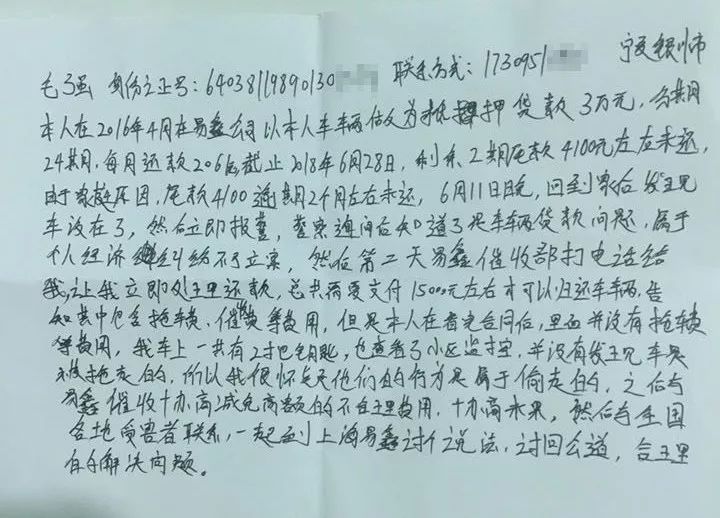 毛了强 身份之正号：64038119890130 联系方式：1730951 宁夏银川市
本人在2016年4月在易鑫公司以本人车车辆做为抵押贷款3万元，分期
24期，每月还款206 截止2018年6月28日，剩余2期尾款4100元左右未还，
由于家庭原因，尾款4100逾期2个月左右未还，6月11日晚，回到家后发现
车没在了，然后立即报警，警察询问后知道了是车辆贷款问题，属于
个人经济纠纷不予立案，然后第二天易鑫催收部打电话给
我，让我立即处理还款，总共需要支付15000元左右才可以归还车辆，告
知其中包含拖车费、催收费等费用，但是本人在看完合同后，里面并没有拖车费
等费用，我车上一共有2把钥匙，也查看了小区监控，并没有发现车是
被拖走的，所以我很怀疑他们的行为是属于偷走的，之后与
易鑫催收协商减免高额的不合理费用，协商未果，然后与全国
各地受害者联系，一起至到上海易鑫讨个说法，讨回公道，合理
的解决问题。